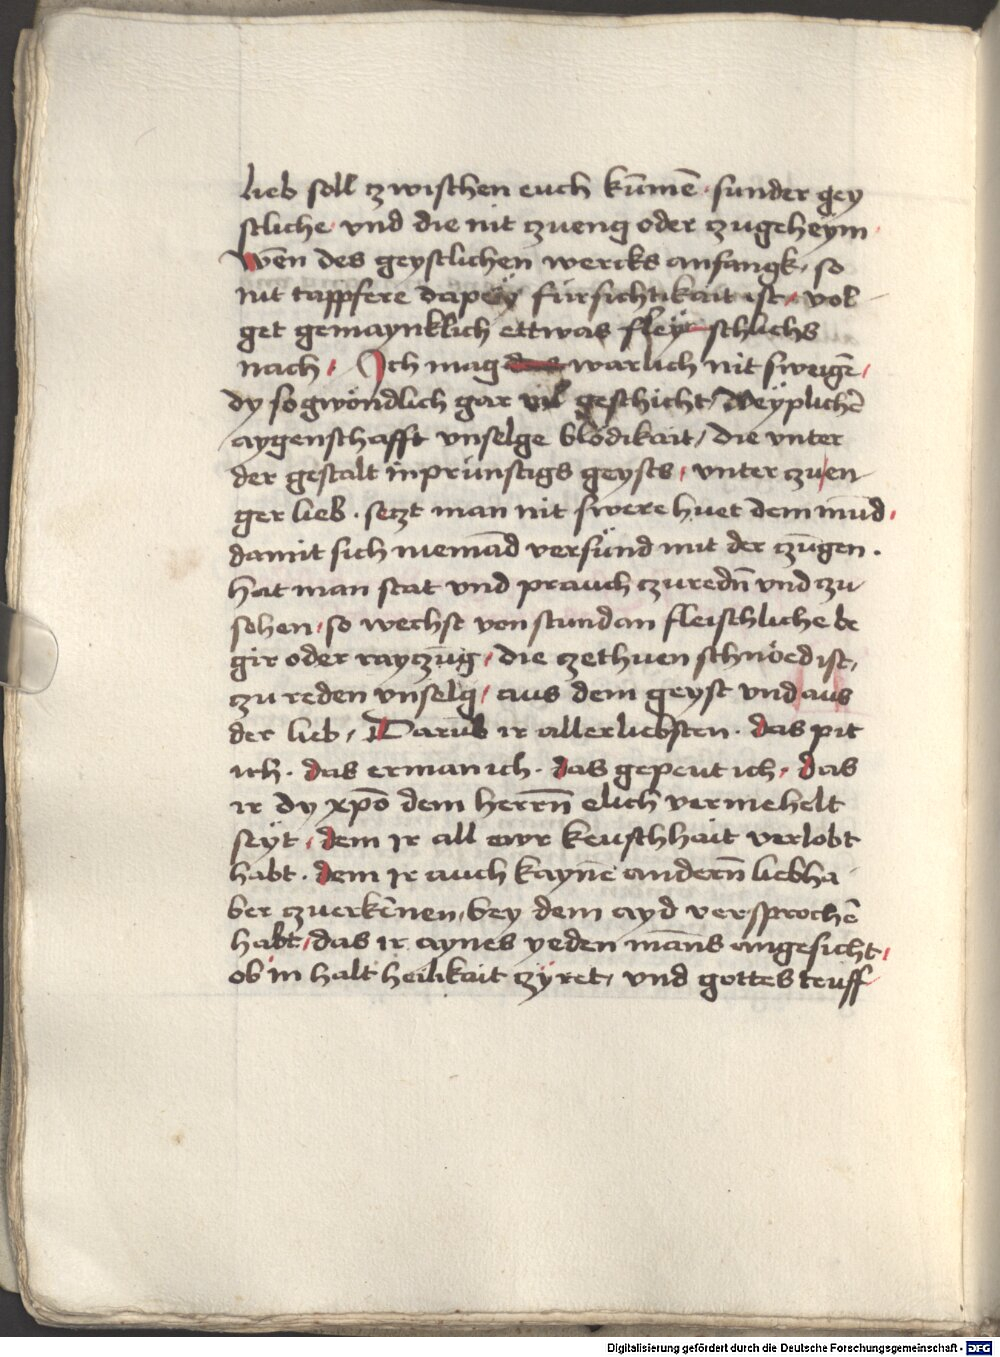 lieb soll zwischen euch kūmē · sunder gey
stliche / vnd die nit zueng oder zugeheym /
Wēn des geystlichen wercks anfangk / so
nit tappfere dapeÿ fürsichtikait ist / vol-
get gemaynklich ettwas fleyschlichs
nach / Ich mag warlich nit sweigē /
dy so gwöndlich gar vil geschicht / weÿplichē
aygenschafft vnselge blödikait / die vnter
der gestalt inprünstigs geysts / vnter zu en
ger lieb · setzt man nit swere huet dem mūd /
damit sich niemād versünd mit der zūgen ·
hat man stat vnd prauch zuredn̄ vnd zu
sehen / so wechst von stundan fleischliche be
gir oder rayczūg / die zethuen schnöed ist /
zu reden vnselg / aus dem geyst vnd aus
der lieb / Darūb ir allerliebsten · das pit
ich · das erman ich · das gepeut ich / das
ir dy xp̄o dem herrn̄ elich vermehelt
seÿt / dem jr all ewr keuschhait verlobt
habt · dem jr auch kaynē andern̄ liebha
ber zuerkēnen / bey dem ayd versprochē
habt / das ir aynes yeden māns angesicht /
ob in halt heilikait zÿret / vnd gottes teuff
Digitalisierung gefördert durch die Deutsche Forschungsgemeinschaft - DFG